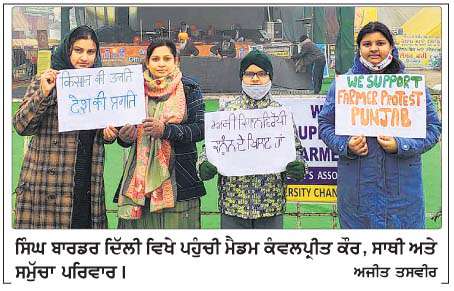 किसान की उन्नति
देश की प्रगति
ਵਿਰੋਧੀ
ਦੇ ਖਿਲਾਫ ਹਾਂ
WE SUPPORT
FARMER PROTEST
PUNJAB
W
UP
ARME
'S ASSO
ERSITY CHAN
ਸਿੰਘ ਬਾਰਡਰ ਦਿੱਲੀ ਵਿਖੇ ਪਹੁੰਚੀ ਮੈਡਮ ਕੰਵਲਪ੍ਰੀਤ ਕੌਰ, ਸਾਥੀ ਅਤੇ
ਸਮੁੱਚਾ ਪਰਿਵਾਰ। ਅਜੀਤ ਤਸਵੀਰ